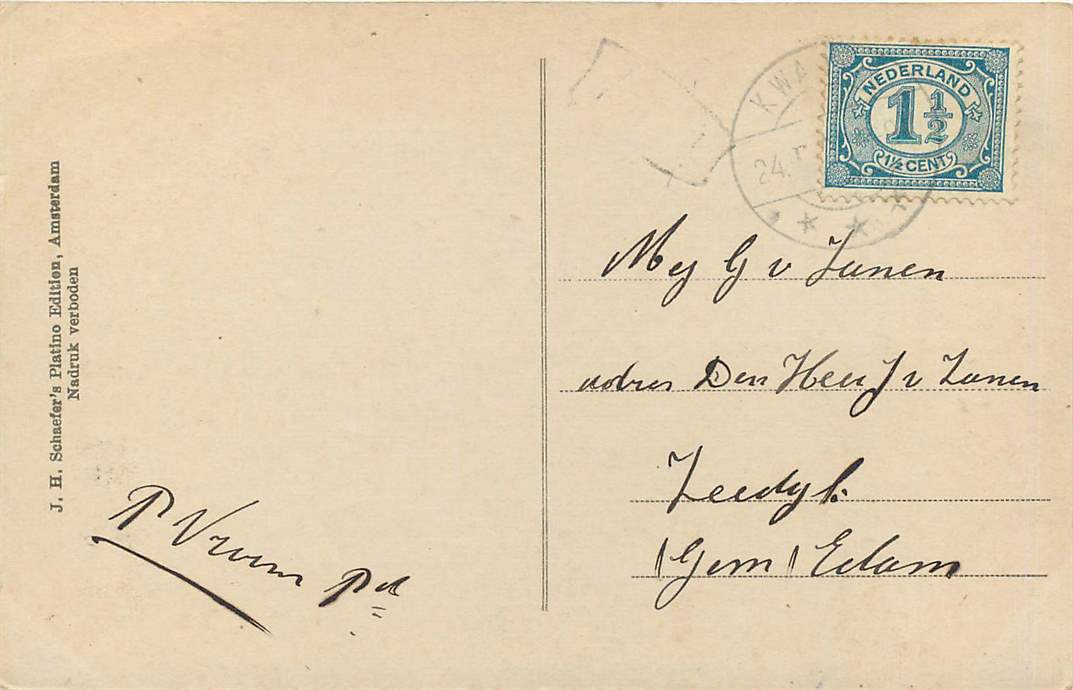 J. H. Schaefer's Platino Edition, Amsterdam
Nadruk verboden
KWA
24.
NEDERLAND
1 1/2
1½ CENT
Mej G v Zanen
adres Den Heer J v Zanen
Zeedijk
(Gem) Edam
P Vroom Pd